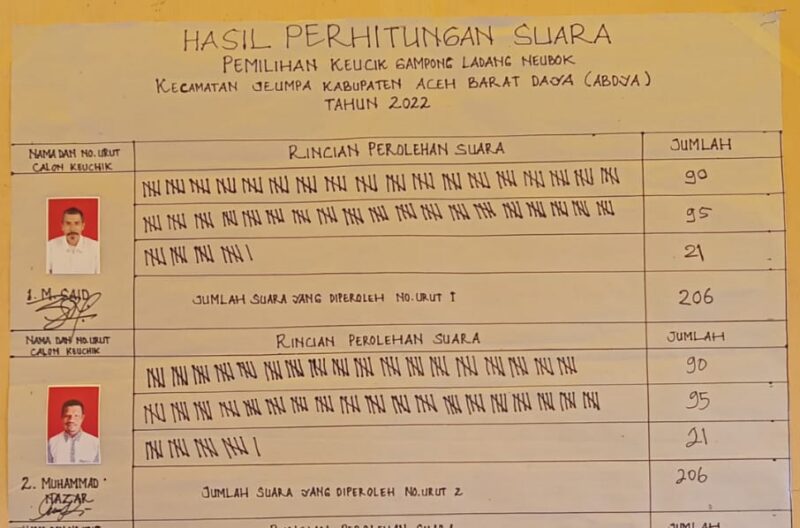 HASIL PERHITUNGAN SUARA
PEMILIHAN KEUCIK GAMPONG LADANG NEUBOK
KECAMATAN JEUMPA KABUPATEN ACEH BARAT DAYA (ABDYA)
TAHUN 2022
NAMA DAN NO. URUT
CALON KEUCHIK
RINCIAN PEROLEHAN SUARA
JUMLAH
90
95
21
1. M. SAID
JUMLAH SUARA YANG DIPEROLEH NO. URUT 1
206
NAMA DAN NO. URUT
CALON KEUCHIK
RINCIAN PEROLEHAN SUARA
JUMLAH
90
95
21
2. MUHAMMAD
NAZAR
JUMLAH SUARA YANG DIPEROLEH NO. URUT 2
206
RINCIAN PEROLEHAN SUARA
JUMLAH